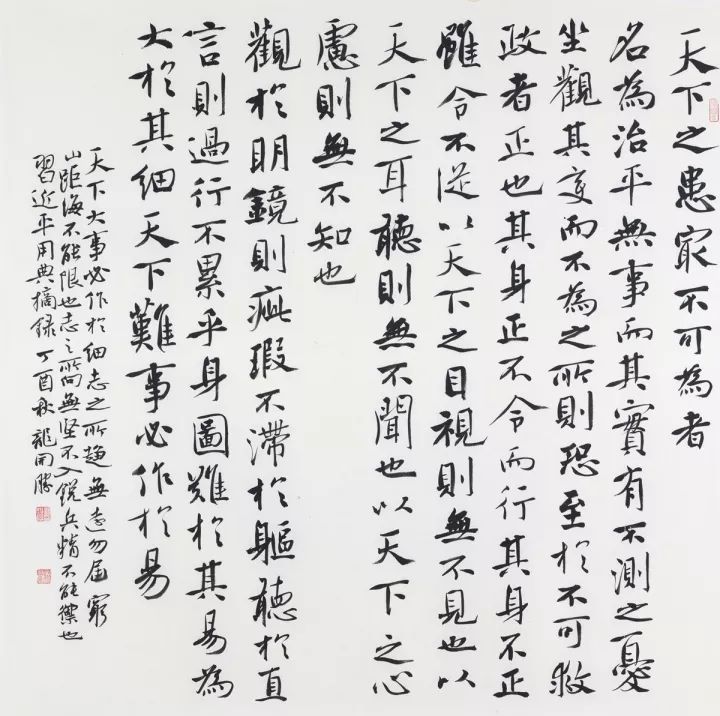 天下之患冣不可為者
名為治平無事而其實有不測之憂
坐觀其变而不為之所則恐至於不可救
政者正也其身正不令而行其身不正
雖令不從以天下之目視則無不見也以
天下之耳聽則無不聞也以天下之心
慮則無不知也
觀於明鏡則疵瑕不滯於軀聽於直
言則過行不累乎身圖難於其易為
大於其細天下難事必作於易
天下大事必作於细志之所趨無遠勿届窮
山距海不能限也志之所向無坚不入銳兵精不能禦也
習近平用典摘録 丁酉秋 龍開勝